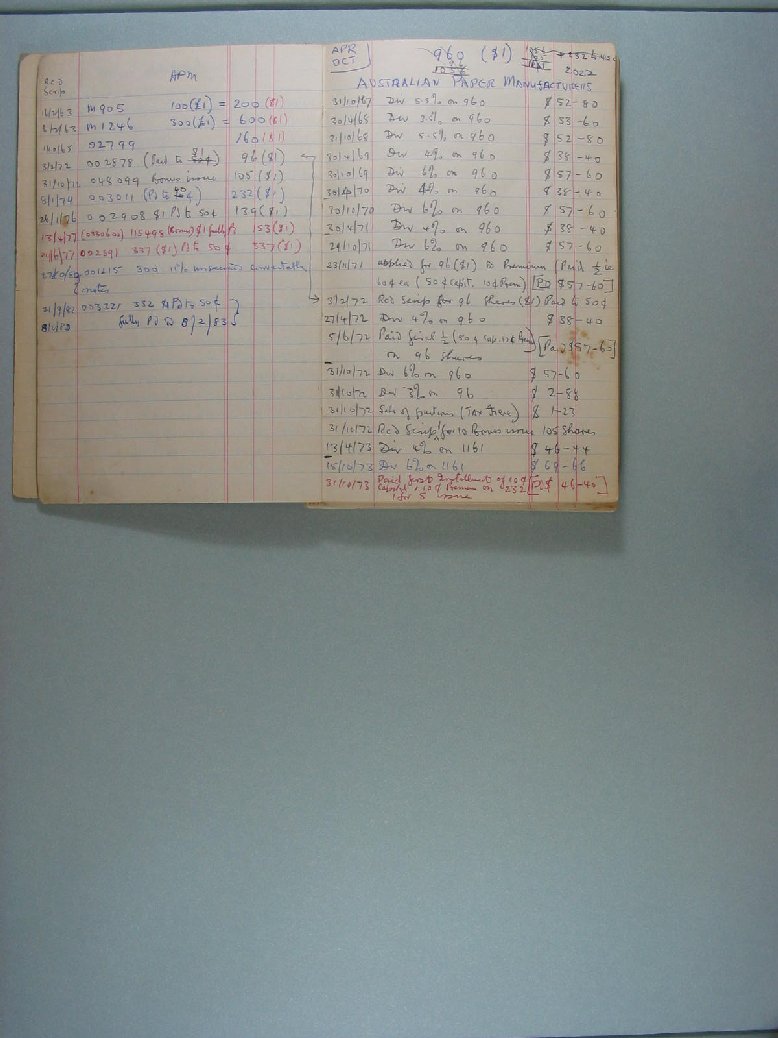 Rcd
Scrip
APM
M905 100(£1) = 200($1)
M1246 300(£1) = 600($1)
02799 160($1)
3/2/72 002878 (Paid to 96($1)
31/10/72 048099 Bonus issue 105($1)
003011 (Pd to 232($1)
002908 $1 Pd to 50¢ 139($1)
13/4/77 115498 (Bonus) $1 fully Pd 153($1)
002391 337($1) Pd to 50¢ 337($1)
001215 300 11% unsecured convertible
notes
21/9/82 003221 332 Pd to 50¢
fully Pd to 8/2/83
APR
OCT
960 ($1)
AUSTRALIAN PAPER MANUFACTURERS
31/10/67 Div 5.5% on 960 $52-80
30/4/68 Div 3.5% on 960 $33-60
31/10/68 Div 5.5% on 960 $52-80
30/4/69 Div 4% on 960 $38-40
30/10/69 Div 6% on 960 $57-60
30/4/70 Div 4% on 960 $38-40
30/10/70 Div 6% on 960 $57-60
30/4/71 Div 4% on 960 $38-40
29/10/71 Div 6% on 960 $57-60
23/11/71 applied for 96($1) @ Premium (Paid ½ ie
60¢ ea (50¢ capit. 10¢ Prem) [Pd $57-60]
3/2/72 Rcd Scrip for 96 shares ($1) Paid to 50¢
27/4/72 Div 4% on 960 $38-40
5/6/72 Paid final ½ (50¢ cap. 10¢ Prem) [Paid $57-60]
on 96 shares
31/10/72 Div 6% on 960 $57-60
31/10/72 Div 3% on 96 $2-88
31/10/72 Sale of fractions (Tax Free) $1-23
31/10/72 Rcd Scrip for 10 Bonus issue 105 Shares
13/4/73 Div 4% on 1161 $46-44
15/10/73 Div 6% on 1161 $69-66
31/10/73 Paid first Instalment of 10¢ [Pd $46-40]
Capital + 10¢ Premium on 232
1 for 5 issue